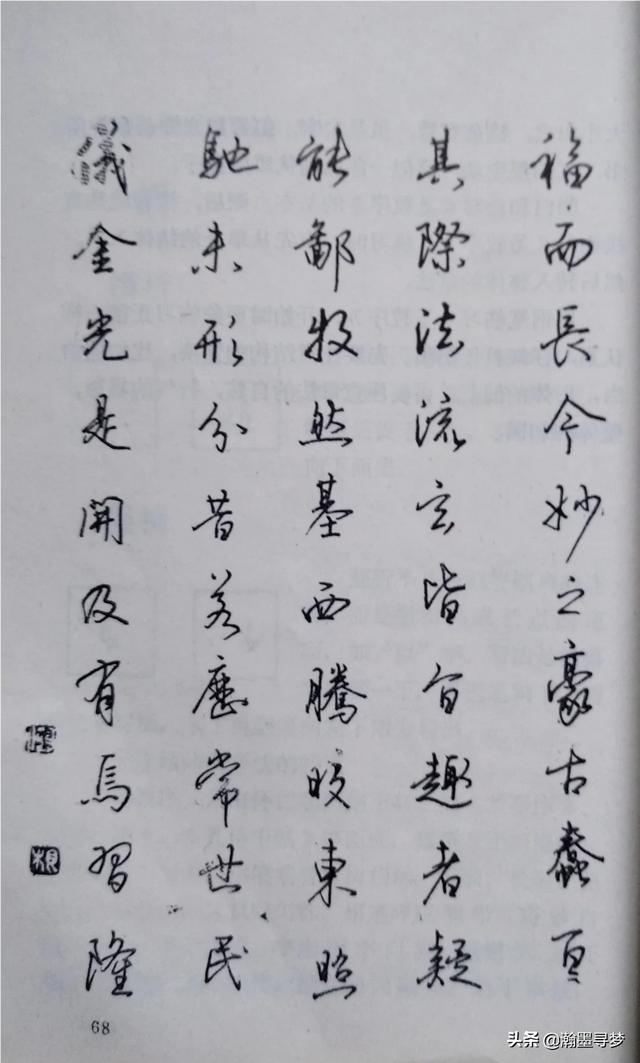 福而長今妙之豪古蠢
其際法流玄皆旨趣者疑
能鄙投然基西騰皎東照
馳未形分昔若歷常世民
儀金光是開及有馬習隆
68
头条 @瀚墨寻梦